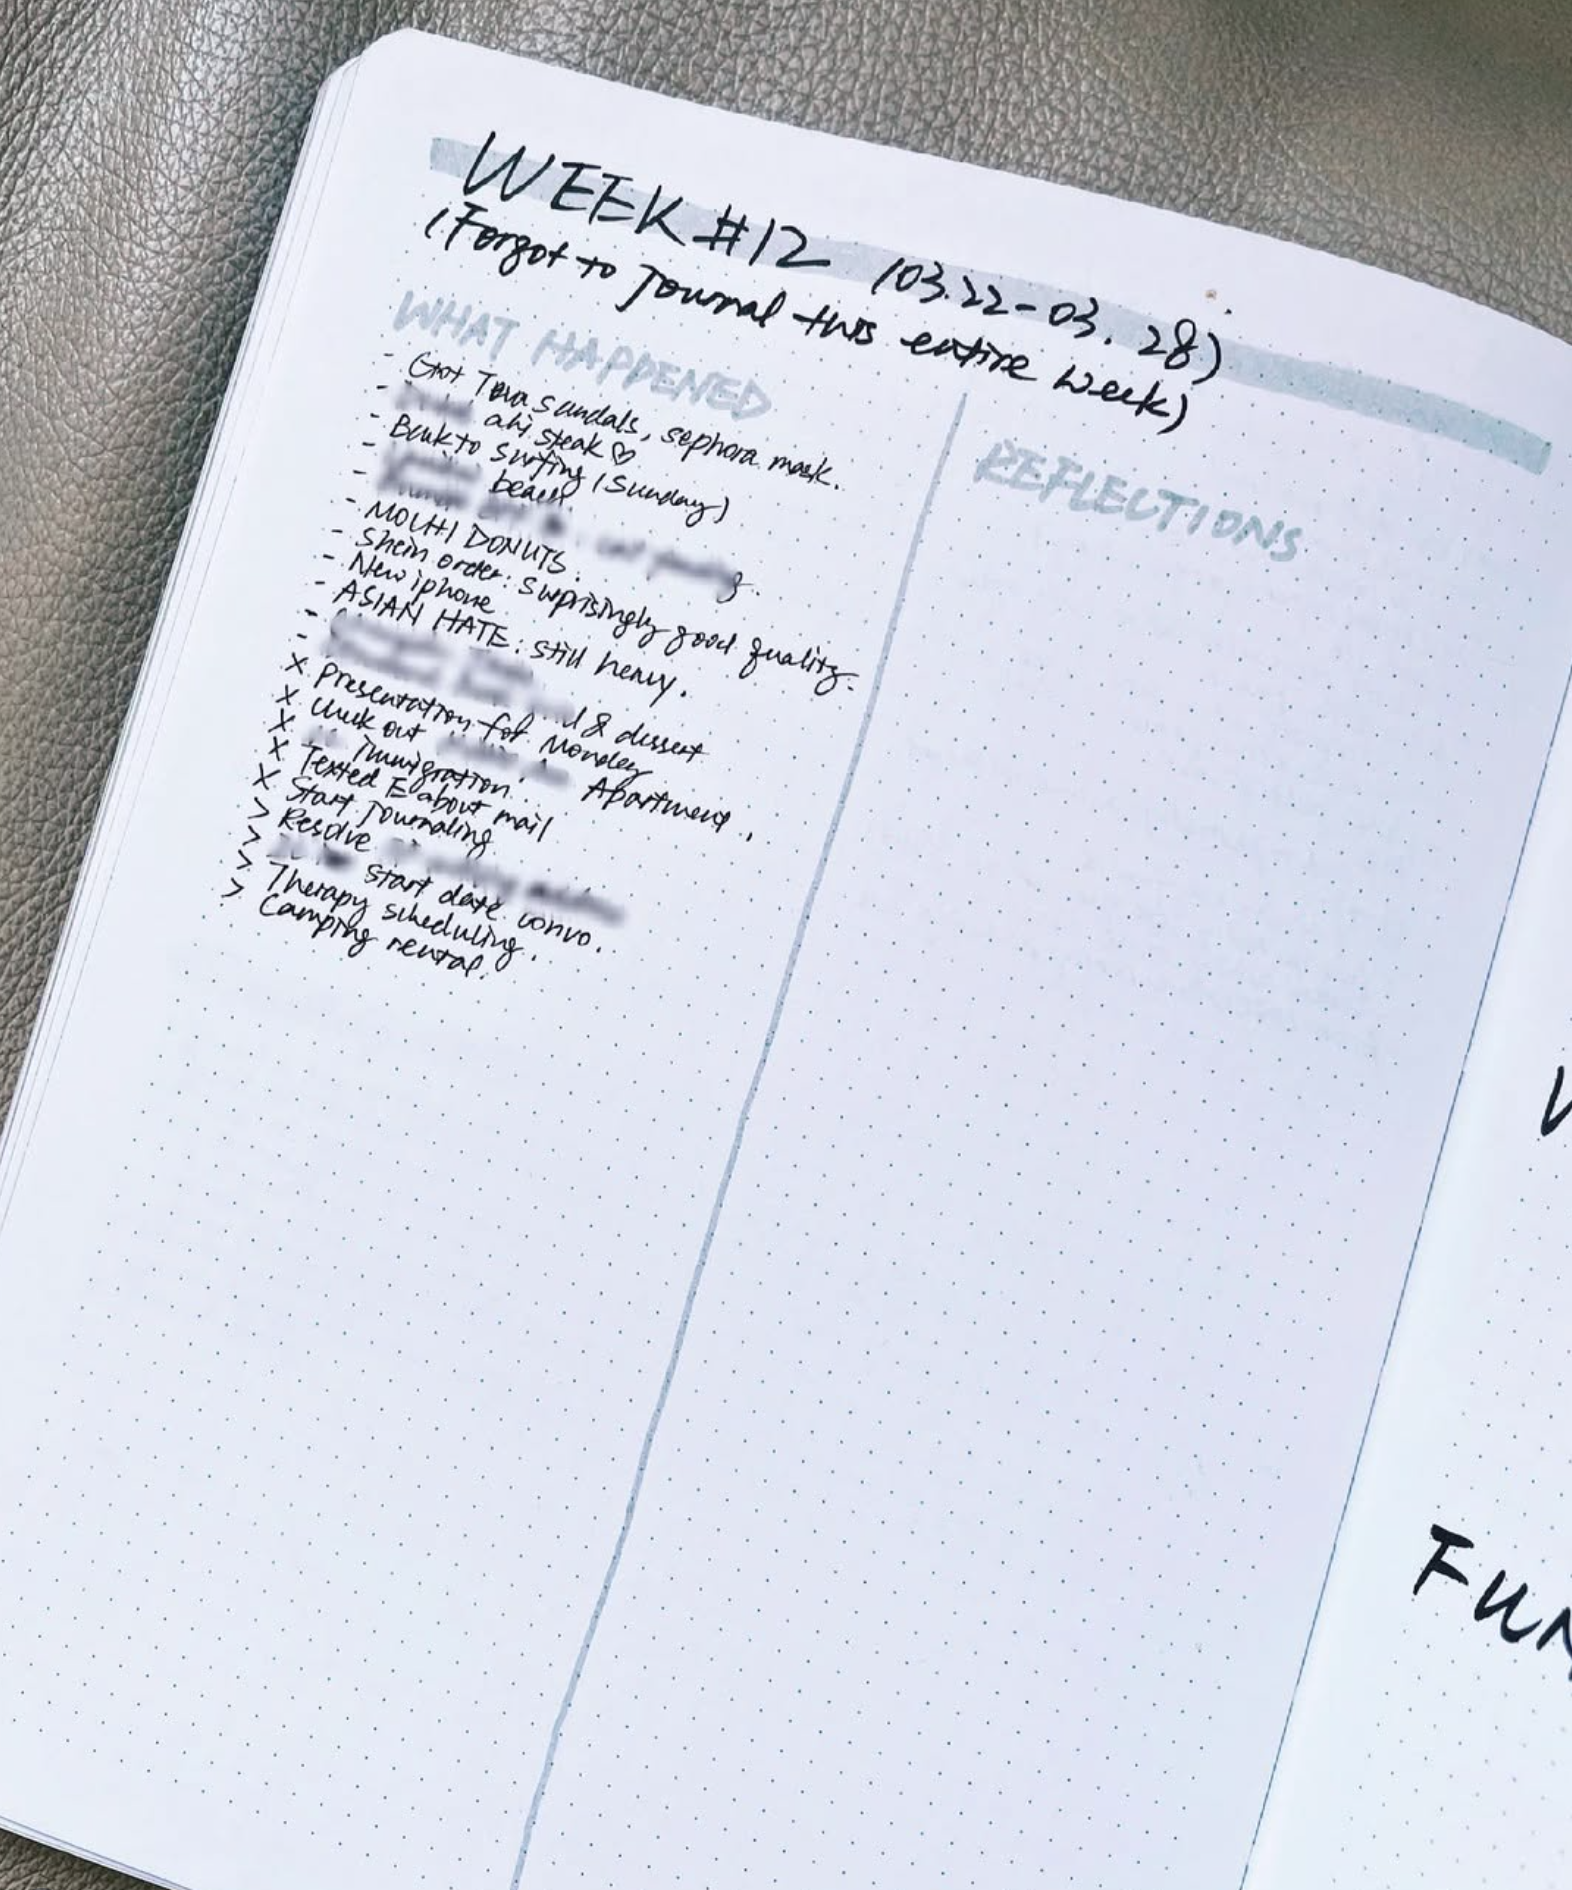 WEEK #12 (03.22-03.28)
(Forgot to journal this entire week)
WHAT HAPPENED
- Got Teva sandals, sephora mask.
- ahi steak ♡
- Back to surfing (Sunday)
- beach
-
- MOCHI DONUTS.
- Shein order: surprisingly good quality.
- New iphone
- ASIAN HATE: still heavy.
-
- & dessert
x Presentation for Monday
x Check out Apartment.
x Immigration.
x Texted E about mail
x Start journaling
> Resolve
> start date convo.
> Therapy scheduling.
> Camping rental.
REFLECTIONS
FUN